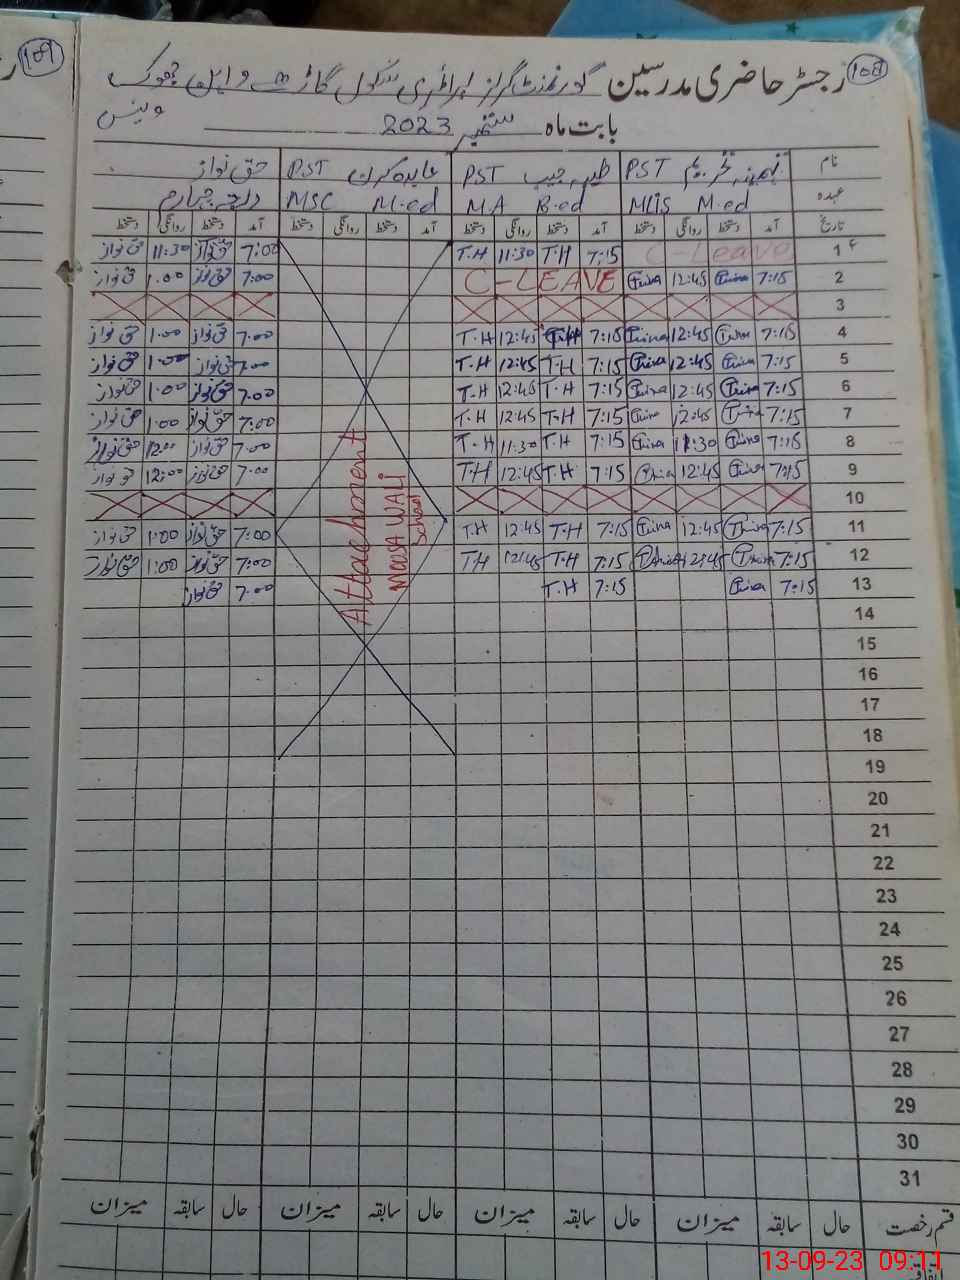 109
108
رجسٹر حاضری مدرسین گورنمنٹ گرلز پرائمری سکول
بابت ماہ ستمبر 2023
نام PST طیبہ حبیب PST عابدہ کرن PST حق نواز
عہدہ M.ed MLIS B.ed M.A M.ed MSC درجہ چہارم
تاریخ آمد دستخط روانگی دستخط آمد دستخط روانگی دستخط آمد دستخط روانگی دستخط آمد دستخط روانگی دستخط
1 C-Leave 7:15 T.H 11:30 T.H 7:00 حق نواز 11:30 حق نواز
2 7:15 12:45 C-LEAVE 7:00 حق نواز 1:00 حق نواز
3
4 7:15 12:45 7:15 T.H 12:45 T.H 7:00 حق نواز 1:00 حق نواز
5 7:15 12:45 7:15 T.H 12:45 T.H 7:00 حق نواز 1:00 حق نواز
6 7:15 12:45 7:15 T.H 12:45 T.H 7:00 حق نواز 1:00 حق نواز
7 7:15 12:45 7:15 T.H 12:45 T.H 7:00 حق نواز 1:00 حق نواز
8 7:15 11:30 7:15 T.H 11:30 T.H 7:00 حق نواز 12:00 حق نواز
9 7:15 12:45 7:15 T.H 12:45 T.H 7:00 حق نواز 12:00 حق نواز
10
11 7:15 12:45 7:15 T.H 12:45 T.H 7:00 حق نواز 1:00 حق نواز
12 7:15 12:45 7:15 T.H 12:45 T.H 7:00 حق نواز 1:00 حق نواز
13 7:15 7:15 T.H 7:00 حق نواز
Attachment
MOOSA WALI
School
14
15
16
17
18
19
20
21
22
23
24
25
26
27
28
29
30
31
قسم رخصت حال سابقہ میزان حال سابقہ میزان حال سابقہ میزان حال سابقہ میزان
13-09-23 09:11